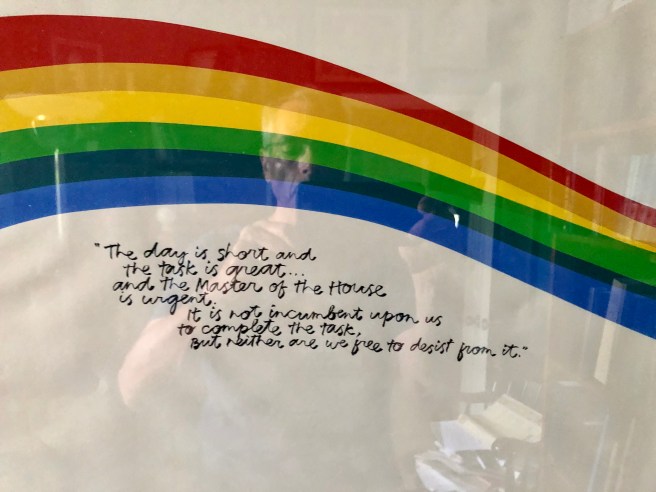 "The day is short and
the task is great...
and the Master of the House
is urgent.
It is not incumbent upon us
to complete the task,
But neither are we free to desist from it."